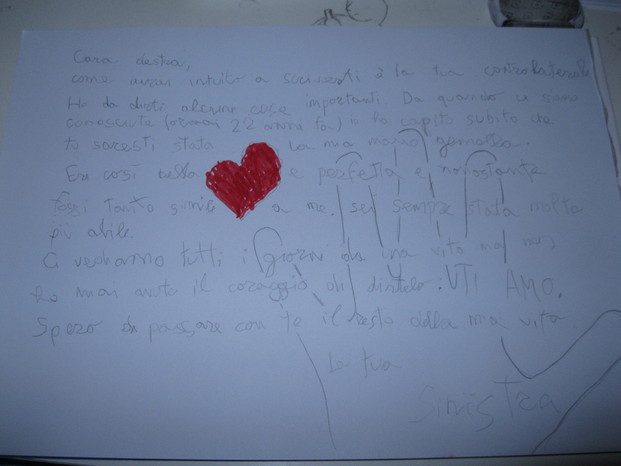 Cara destra,
come avrai intuito a scriverti è la tua controlaterale
Ho da dirti alcune cose importanti. Da quando ci siamo
conosciute (ormai 22 anni fa) io ho capito subito che
tu saresti stata la mia mano gemella.
Eri così bella e perfetta e nonostante
fossi tanto simile a me, sei sempre stata molto
più abile.
Ci vediamo tutti i giorni da una vita ma non
ho mai avuto il coraggio di dirtelo: TI AMO.
Spero di passare con te il resto della mia vita.
La tua
Sinistra